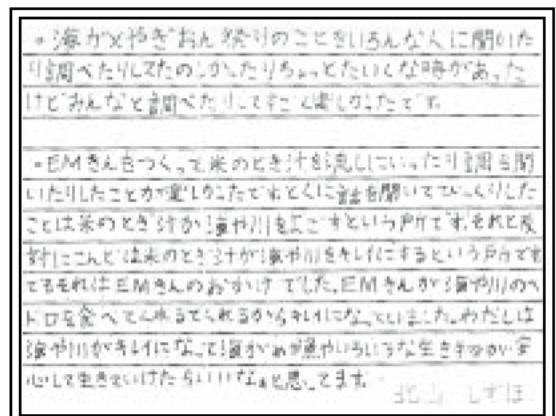 ・海がめやぎおん祭りのことをいろんな人に聞いた
り調べたりしてたのしかったりちょっとたいくつな時があった
けどみんなと調べたりしてすごく楽しかったです。
・EMきんをつくって米のとぎ汁を流しにいったり話を聞
いたりしたことが楽しかったですとくに話を聞いてびっくりした
ことは米のとぎ汁が海や川をよごすという所です。それと反
対にこんどは米のとぎ汁が海や川をキレイにするという所です
でもそれはEMきんのおかげでした。EMきんが海や川のヘ
ドロを食べてくれるからキレイになっていました。わたしは
海や川がキレイになって海がめが魚やいろいろな生き物が安
心して生きていけたらいいなぁと思ってます。